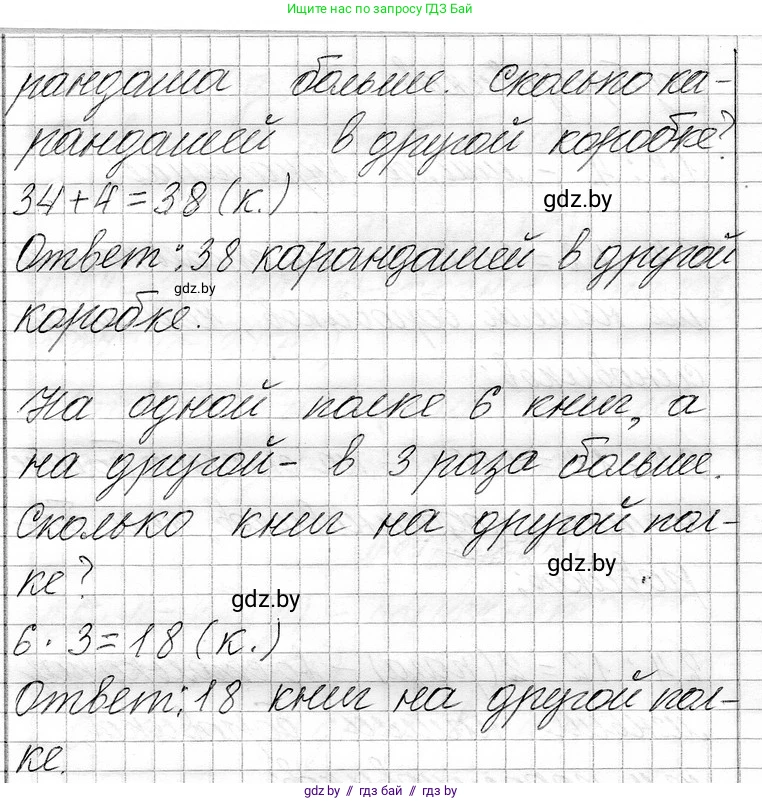 Ищите нас по запросу ГДЗ Бай
рандаша больше. Сколько ка-
рандашей в другой коробке?
34+4=38 (к.)
gdz.by
Ответ: 38 карандашей в другой
gdz.by
коробке.
На одной полке 6 книг, а
на другой - в 3 раза больше.
Сколько книг на другой пол-
ке?
gdz.by
gdz.by
6 · 3=18 (к.)
Ответ: 18 книг на другой пол-
ке.
gdz.by // гдз бай // gdz by